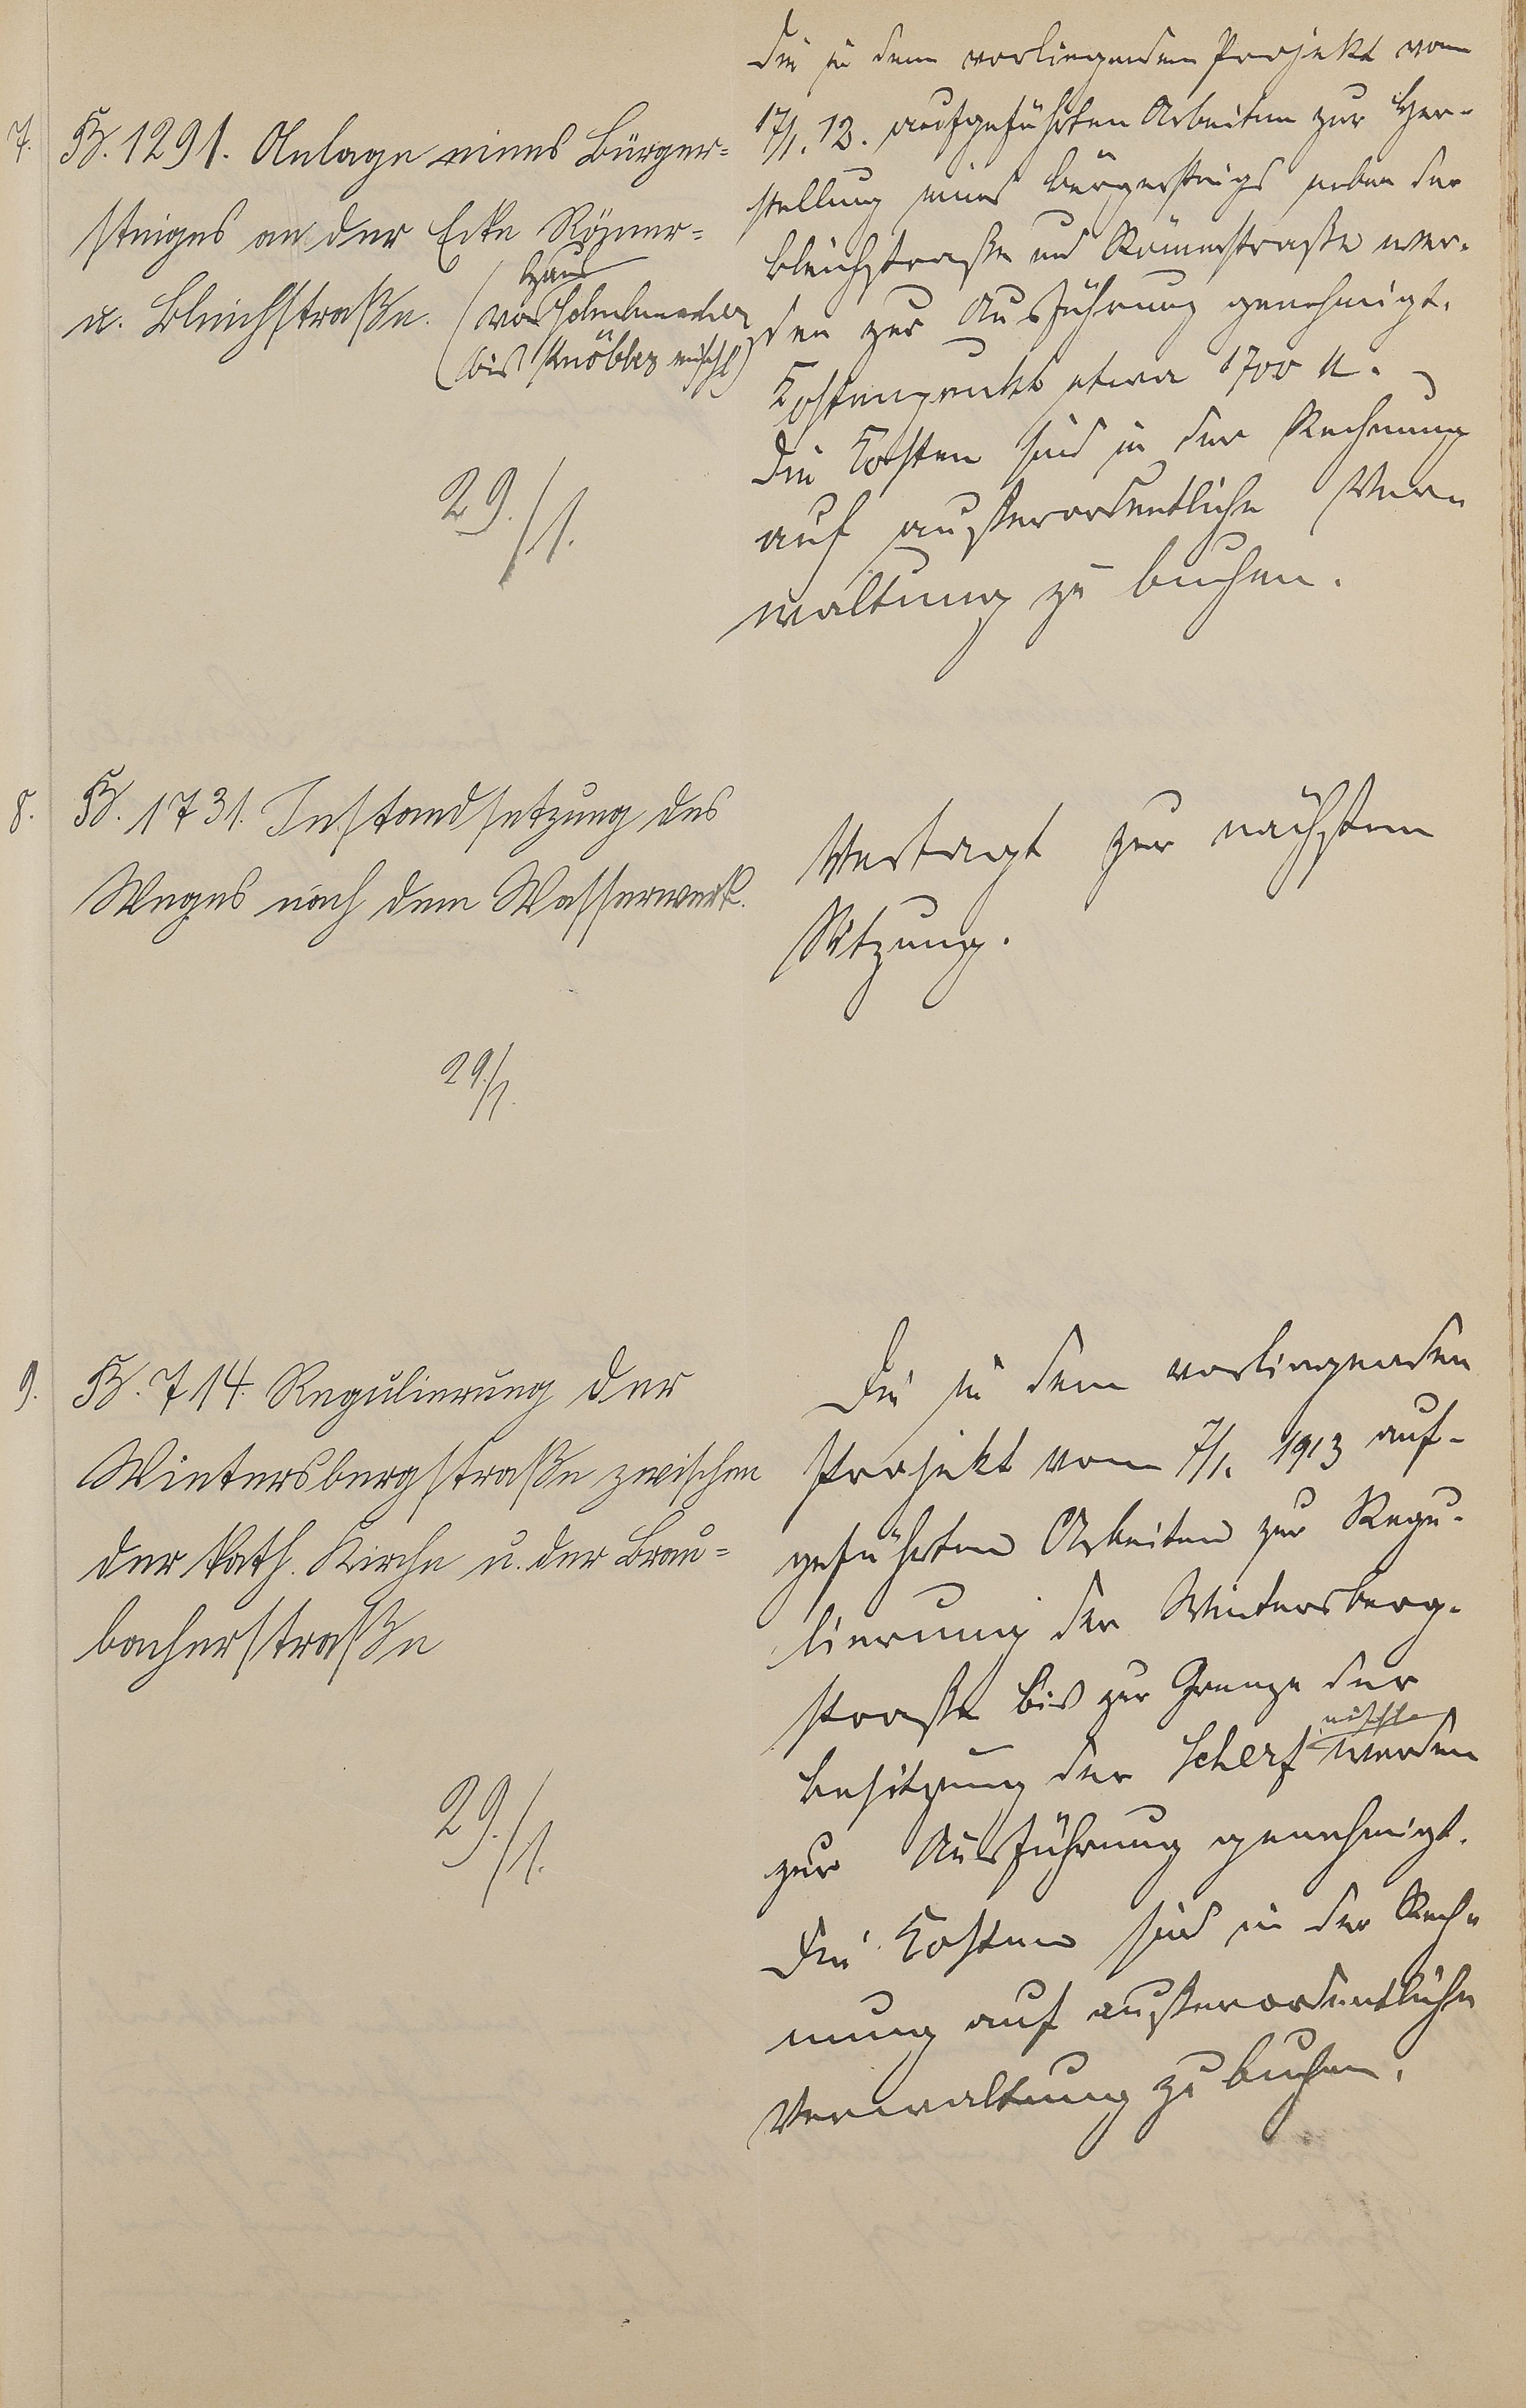 7.
B. 1291. Anlage eines Bürger=
steiges an der Ecke Römer=
u. Bleichstraße.
(Haus
von Schuhmacher
bis Knöbber einschl)
29./1.
Die in dem vorliegenden Projekt vom
17/1. 13. aufgeführten Arbeiten zur Her-
stellung eines Bürgersteigs neben der
Bleichstraße und Römerstraße wer-
den zur Ausführung genehmigt.
Kostenpunkt etwa 1700 M.
Die Kosten sind in der Rechnung
auf außerordentliche Ver-
waltung zu buchen.
8.
B. 1731. Instandsetzung des
Weges nach dem Wasserwerk.
29./1.
Vertagt zur nächsten
Sitzung.
9.
B. 714. Regulierung der
Wintersbergstraße zwischen
der kath. Kirche u. der Brau=
bacherstraße
29./1.
Die in dem vorliegenden
Projekt vom 7/1. 1913 auf-
geführten Arbeiten zur Regu-
lierung der Wintersberg-
straße bis zur Grenze der
Besitzung der Scherf werden
zur Ausführung genehmigt.
Die Kosten sind in der Rech-
nung auf außerordentliche
Verwaltung zu buchen.